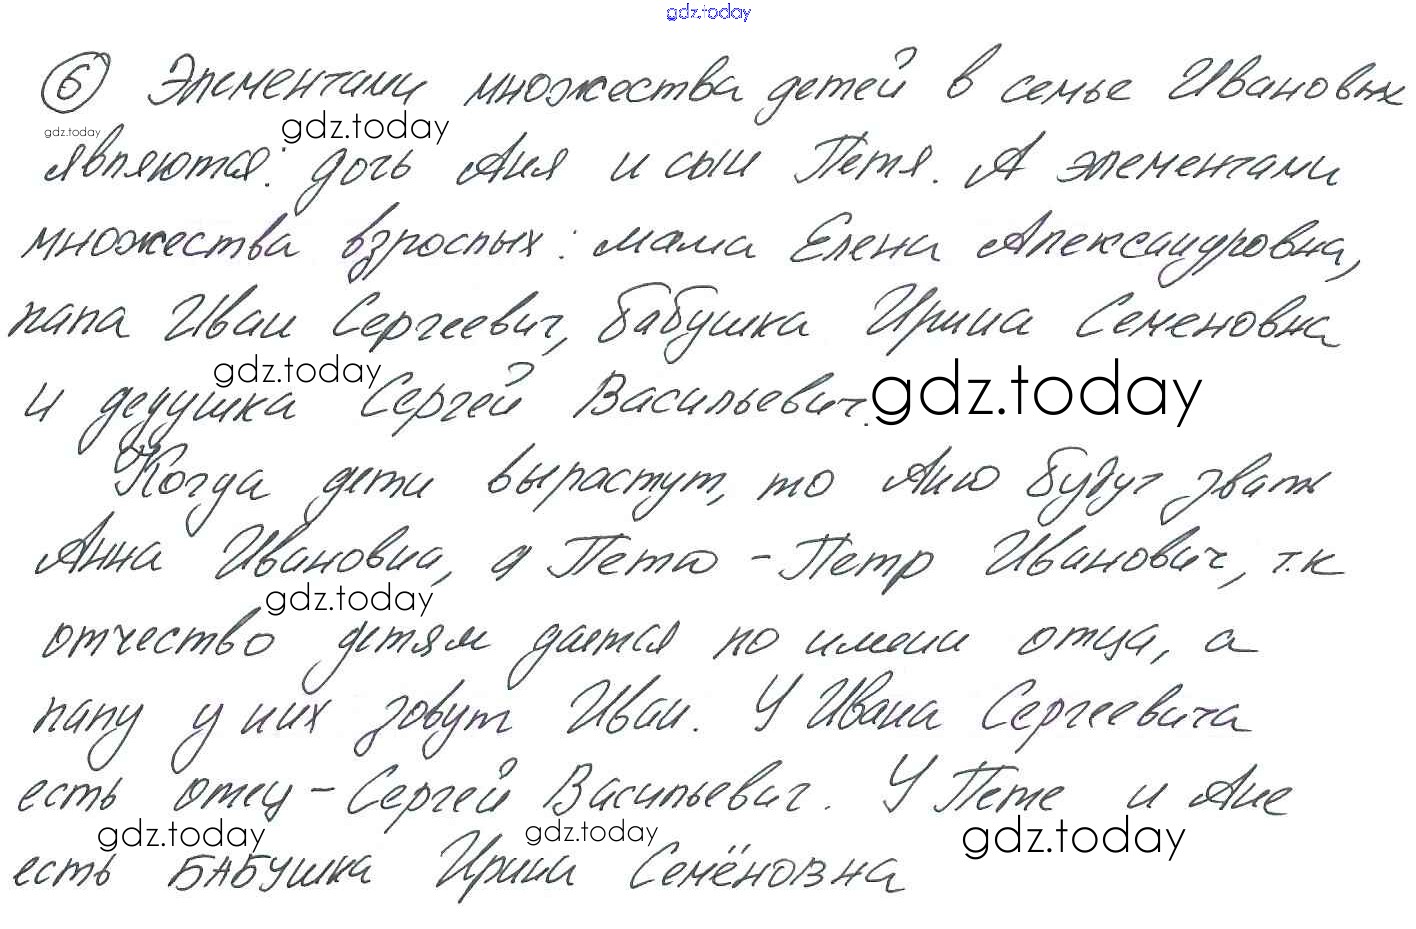 gdz.today
6 Элементами множества детей в семье Ивановых
gdz.today gdz.today
являются: дочь Аня и сын Петя. А элементами
множества взрослых: мама Елена Александровна,
папа Иван Сергеевич, бабушка Ирина Семеновна
gdz.today
и дедушка Сергей Васильевич. gdz.today
Когда дети вырастут, то Аню будут звать
Анна Ивановна, а Петю - Петр Иванович, т.к
gdz.today
отчество детям дается по имени отца, а
папу у них зовут Иван. У Ивана Сергеевича
есть отец - Сергей Васильевич. У Пете и Ане
gdz.today gdz.today gdz.today
есть БАБУШКА Ирина Семёновна